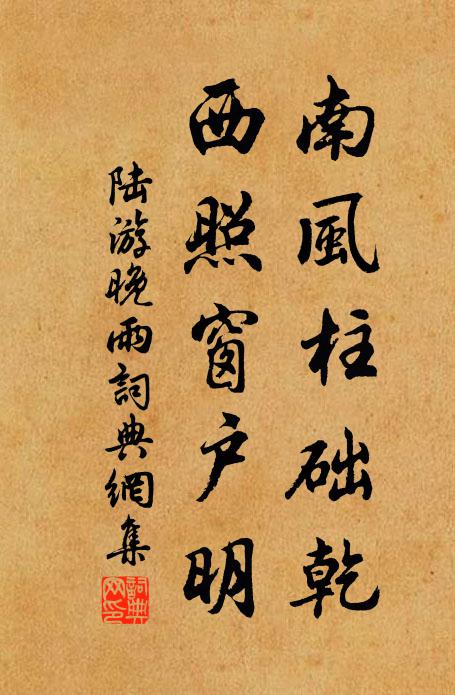 南風柱础乾
西照窗户明
陆游晚雨詞典網集
詞典网印